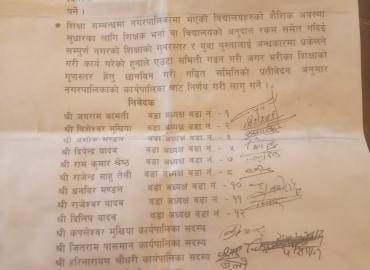 पर्ने ।
• शिक्षा सम्बन्धमा नगरपालिकामा भएको विद्यालयहरुको शैक्षिक अवस्था
सुधारका लागि शिक्षक भर्ना वा विद्यालयको अनुदान रकम समेत नदिई
सम्पूर्ण नगरको शिक्षाको गुनस्तर र युवा पुस्तालाई अन्धकारमा धकेलने
गरी कार्य गरेको हुनाले एउटा समिती गठन गरी जगर भरीका शिक्षाको
गुणस्तर हेतु छानविन गरी गठित समितिको प्रतीवेदन अनुसार
नगरपालिकाको कार्यपालिका बाट निर्णय गरी लागु गर्ने ।
निवेदक
श्री जयराम कामती वडा अध्यक्ष वडा नं. - १
श्री विशेश्वर मुखिया वडा अध्यक्ष वडा नं. -
श्री अशोक मण्डल वडा अध्यक्ष वडा नं. -
श्री दिपेन्द्र यादव वडा अध्यक्ष वडा नं. - ५
श्री राम कुमार श्रेष्ठ वडा अध्यक्ष वडा नं. - ७
श्री राजेन्द्र साहु तेली वडा अध्यक्ष वडा नं. - ८
श्री धनविर मण्डल वडा अध्यक्ष वडा नं. - १०
श्री राजेश्वर यादव वडा अध्यक्ष वडा नं. - ११
श्री दिलिप यादव वडा अध्यक्ष वडा नं. - १२
श्री कपलेश्वर मुखिया कार्यपालिका सदस्य
श्री जितराम पासमान कार्यपालिका सदस्य
श्री हरिनारायण चौधरी कार्यपालिका सदस्य